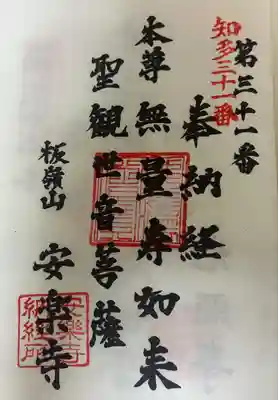 知多三十一番
第三十一番
奉納経
本尊無量寿如来
聖観世音菩薩
板嶺山
安楽寺
安樂寺
納経所